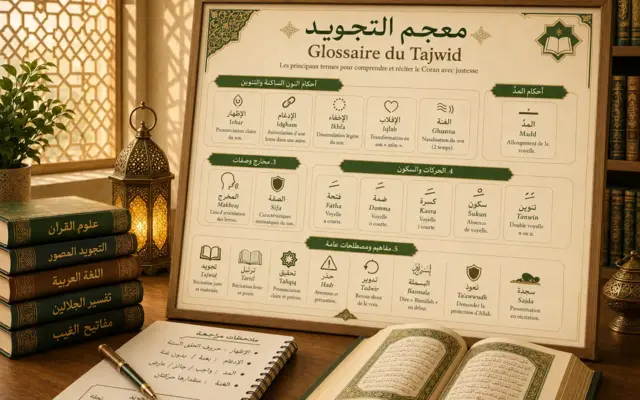 معجم التجويد
Glossaire du Tajwid
Les principaux termes pour comprendre et réciter le Coran avec justesse
أحكام النون الساكنة والتنوين
الإظهار
Izhar
Prononciation claire
du son.
الإدغام
Idgham
Assimilation d'une
lettre dans une autre.
الإخفاء
Ikhfa
Dissimulation légère
du son.
الإقلاب
Iqlab
Transformation en
son « mim ».
الغنة
Ghunna
Nasalisation du son
(2 temps).
أحكام المدّ
المدّ
Madd
Allongement de la
voyelle.
3. مخارج وصفات
المخرج
Makhraj
Lieu d'articulation
des lettres.
الصفة
Sifa
Caractéristiques
4. الحركات والسكون
فتحة
Fatha
Voyelle
a courte.
ضمة
Damma
Voyelle
كسرة
Kasra
Voyelle
i courte
سكون
Sukun
Absence
de voyelle.
تنوين
Tanwin
Double voyelle
5. مفاهيم ومصطلحات عامة
تجويد
Tajwid
ترتيل
Tartil
تحقيق
Tahqiq
Prononciation
claire et précise.
حذر
Hadr
تدوير
Tadwir
البسملة
Basmala
Dire « Bismillah »
en début.
تعوذ
Ta'awwudh
Demander la
protection d'Allah.
سجدة
Sajda
Prosternation
en récitation.
علوم القرآن
التجويد المصور
اللغة العربية
تفسير الجلالين
مفاتيح الغيب
الإظهار : حروف الحلق الستة
الإدغام : بغنة / بدون غنة
المد : واجب / جائز / عارض
الغنة : مقدارها حركتان